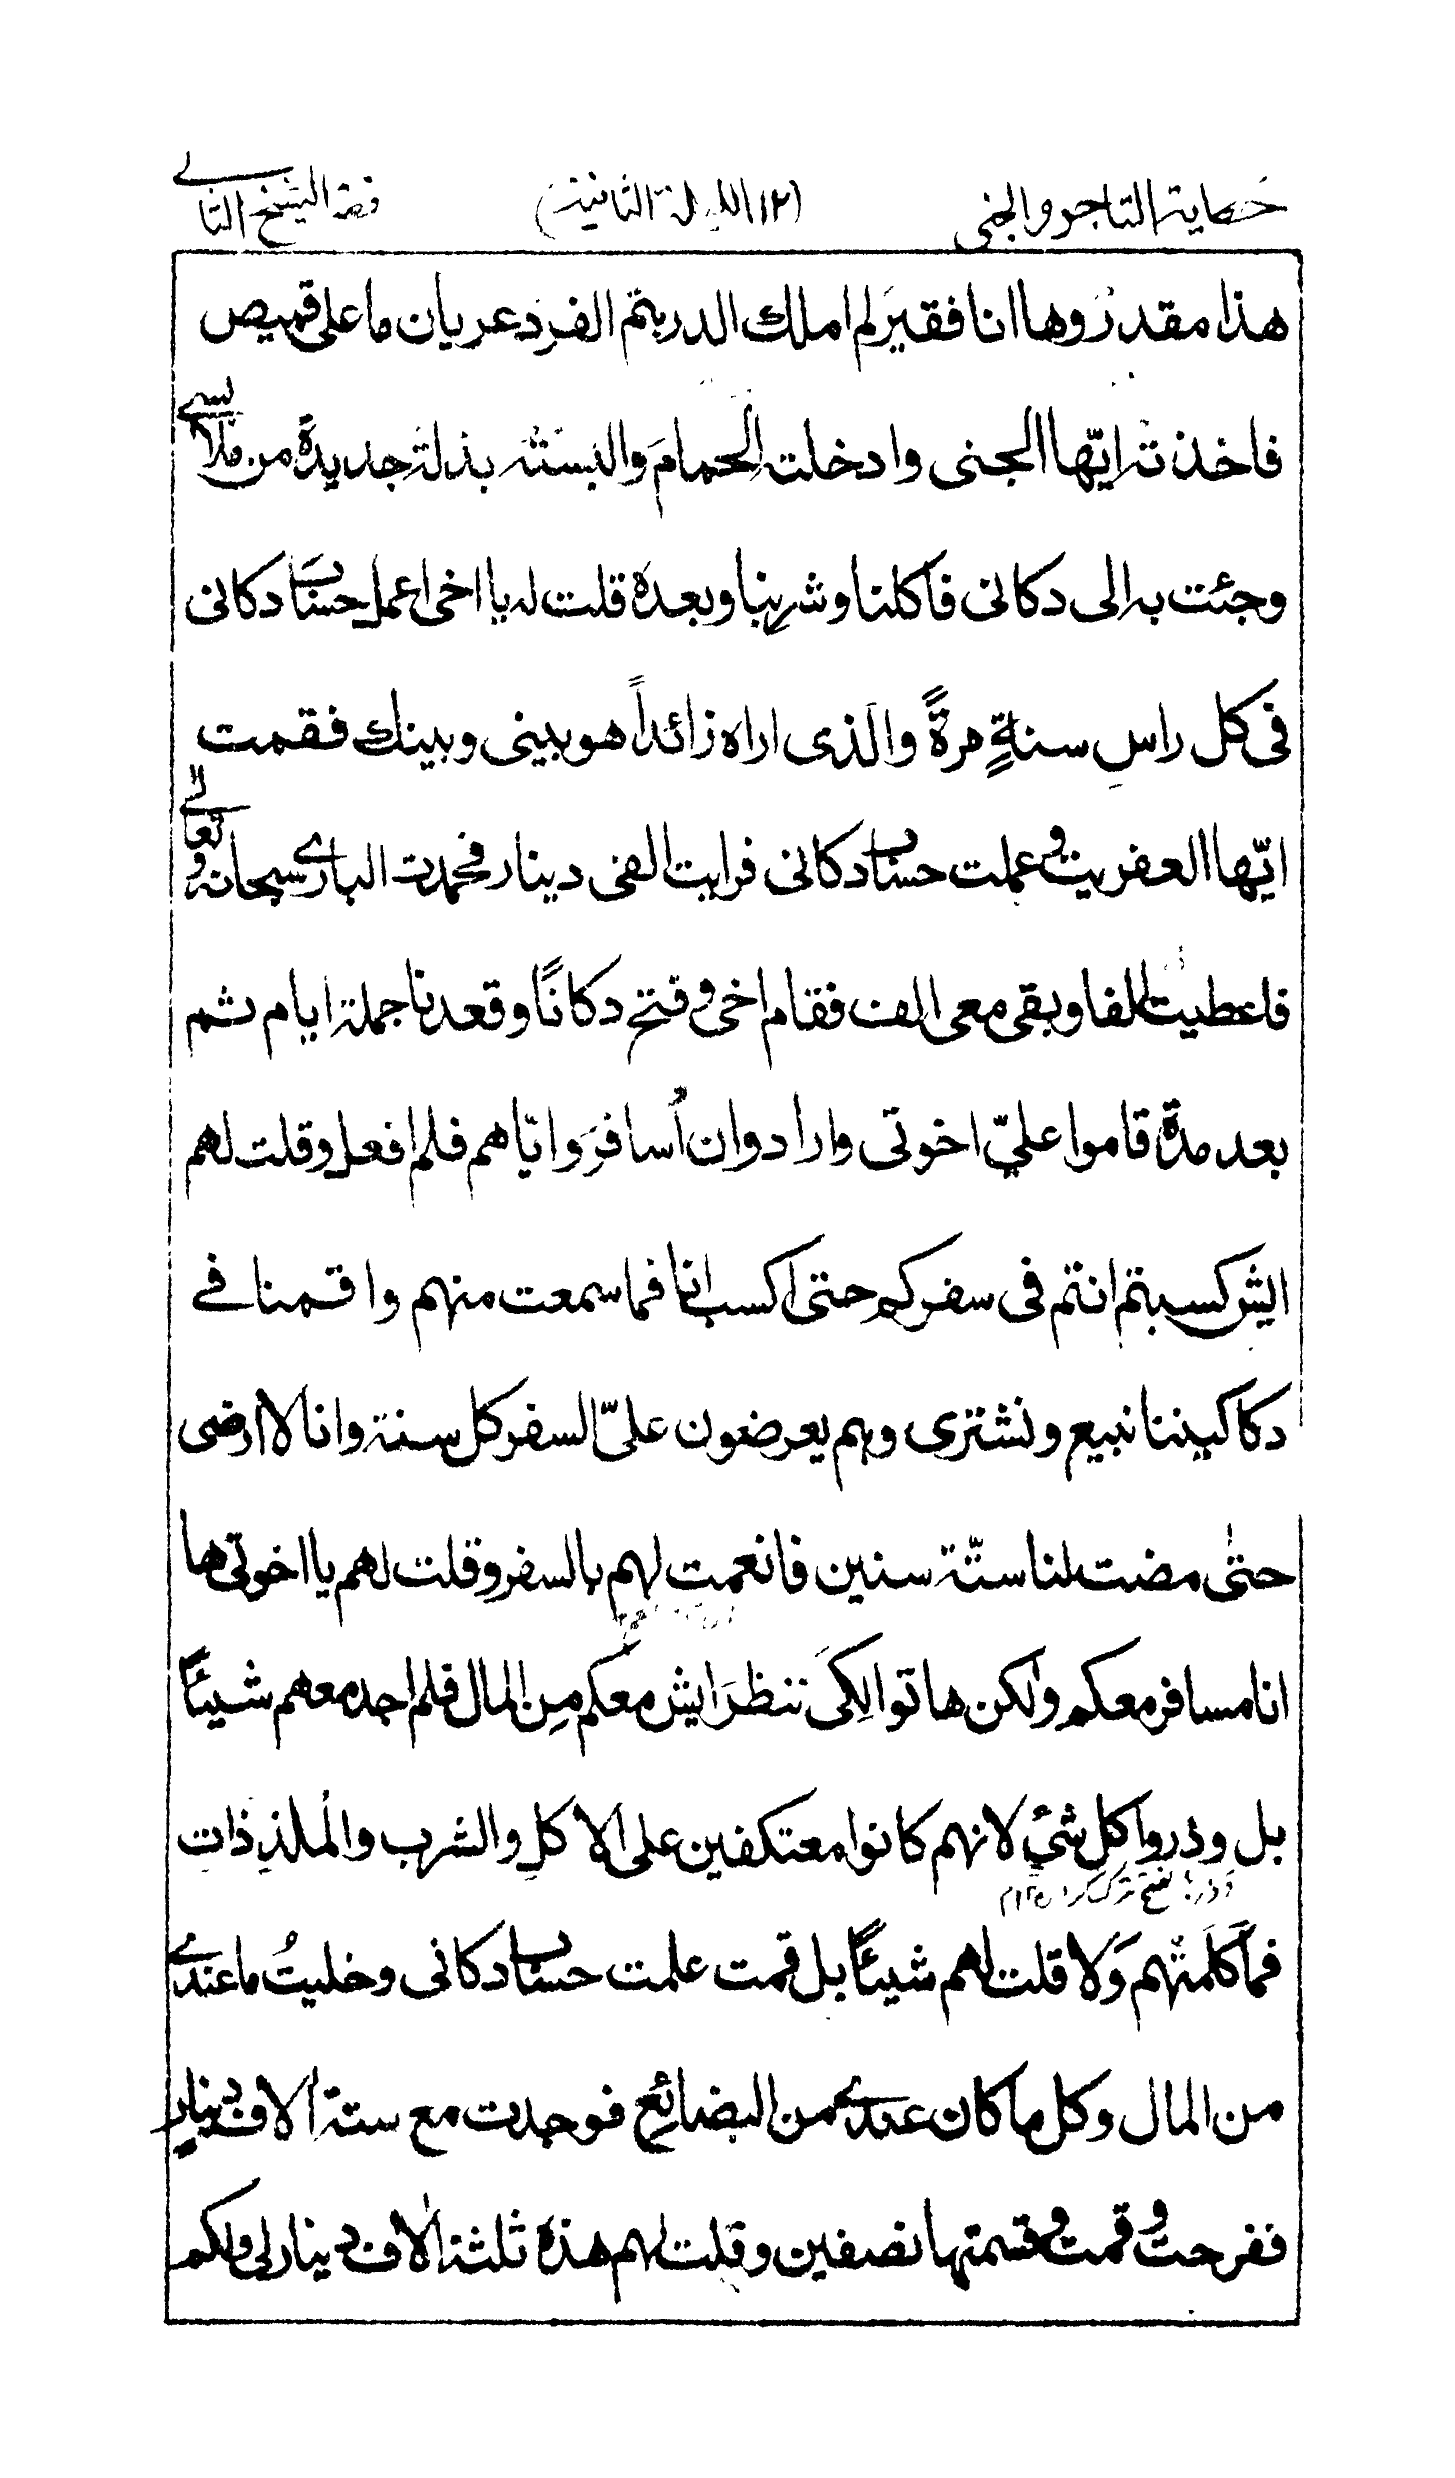 حكاية التاجر والجني (١٢) الليلة الثانية) قصة الشيخ الثاني
هذا مقدرٌ وها انا فقيرَ لم املك الدرهم الفرد عريان ما على قميص
فاخذته ايّها الجنى وادخلته الحمامَ والبسته بذلة جديدةً من ملابسي
وجئت به الى دكانى فاكلنا وشربنا وبعدهُ قلت له يا اخى اعمل حسابَ دكانى
فى كل راسِ سنةٍ مرةً والَذى اراه زائداً هو بينى وبينك فقمت
ايّها العفريت وعملت حساب دكانى فرايت الفى دينار فحمدت الباري سبحانه وتعالى
فاعطيتُه الفا وبقى معى الف فقام اخى وفتح دكانًا وقعدنا جملة ايام ثم
بعد مدة قاموا عليّ اخوتى وارادوان اُسافرَ واياهم فلم افعل وقلت لهم
ايش كسبتم انتم فى سفركم حتى اكسب انا فما سمعت منهم واقمنا فے
دكاكيننا نبيع ونشترى وهم يعرضون علىّ السفر كل سنة وانا لا ارضى
حتىٰ مضت لنا ستّة سنين فانعمت لهم بالسفر وقلت لهم يا اخوتى ها
انا مسافر معكم ولكن هاتوا لِكَى ننظرَ ايش معكم مِن المال فلم اجد معهم شيئاً
بل وذروا كلِ شيٍ لانهم كانوا معتكفين على الاكلِ والشرب والملذِذاتِ
فما كلّمتُهم وَلا قلت لهم شيئاً بل قمت علمت حساب دكانى وخليتُ ما عندي
من المال وكل ما كان عندي من البضائع فوجدت مع ستة الاف دينارٍ
ففرحت وقمت وقسمتها نصفين وقلت لهم هذهِ ثلثة الاف دينار لى ولكم